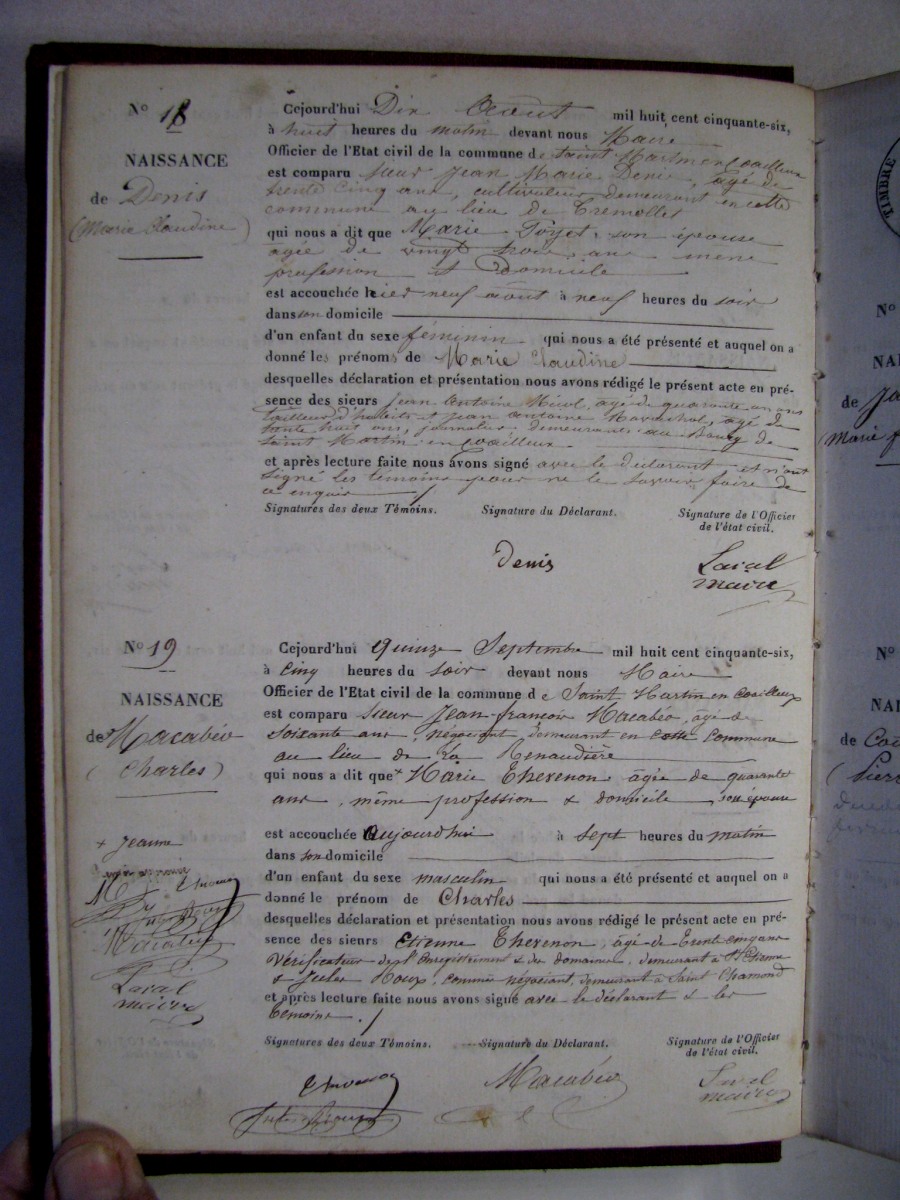 N° 18
NAISSANCE
de Denis
(Marie Claudine)
Cejourd'hui Dix Aout mil huit cent cinquante-six,
à huit heures du matin devant nous Maire
Officier de l'Etat civil de la commune de Saint Martin en Coailleux
est comparu sieur Jean Marie Denis, agé de
trente cinq ans, cultivateur demeurant en cette
commune au lieu de Tremollet
qui nous a dit que Marie Poyet, son épouse
agée de vingt trois ans même
profession et domicile
est accouchée hier neuf aout à neuf heures du soir
dans son domicile
d'un enfant du sexe féminin qui nous a été présenté et auquel on a
donné les prénoms de Marie Claudine
desquelles déclaration et présentation nous avons rédigé le présent acte en pré-
sence des sieurs Jean Antoine agé de quarante un ans
tailleur d'habits et Jean Antoine Marechal, agé de
trente huit ans, journalier demeurants au Bourg de
Saint Martin en Coailleux
et après lecture faite nous avons signé avec le déclarant et n'ont
signé les témoins pour ne le savoir faire de
ce enquis
Signatures des deux Témoins. Signature du Déclarant. Signature de l'Officier
de l'état civil.
Denis
Laval
maire
N° 19
NAISSANCE
de Macabéo
(Charles)
Cejourd'hui quinze Septembre mil huit cent cinquante-six,
à cinq heures du soir devant nous Maire
Officier de l'Etat civil de la commune de Saint Martin en Coailleux
est comparu sieur Jean-françois Macabéo, agé de
soixante ans, négociant, demeurant en cette commune
au lieu de La Renaudière
qui nous a dit que + Marie Thevenon agée de quarante
ans, même profession & domicile, son épouse
est accouchée aujourd'hui à sept heures du matin
dans son domicile
d'un enfant du sexe masculin qui nous a été présenté et auquel on a
donné le prénom de Charles
desquelles déclaration et présentation nous avons rédigé le présent acte en pré-
sence des sieurs Etienne Thevenon, agé de trente cinq ans
Vérificateur de l'Enregistrement & des domaines, demeurant à St Etienne
& Jules Roux, commis négociant, demeurant à Saint Chamond
et après lecture faite nous avons signé avec le déclarant & les
témoins.
+ Jeanne
Thevenon
Jules Roux
Macabéo
Laval
maire
Signatures des deux Témoins. Signature du Déclarant. Signature de l'Officier
de l'état civil.
Thevenon
Jules Roux
Macabéo
Laval
maire
TIMBRE
N°
NAI
de Ja
(Marie
N°
NAI
de Co
(Pierr